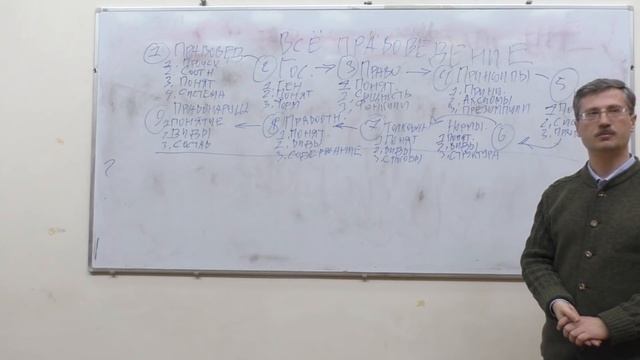 ВСЁ ПРАВОВЕДЕНИЕ
1 ПРАВОВЕД
2. СООТН
3. ПОНЯТ
4. СИСТЕМА
2 ГОС.
2. ПОНЯТ
3 ПРАВО
1. ПОНЯТ
2. СУЩНОСТЬ
3. ФУНКЦИИ
4 ПРИНЦИПЫ
2. АКСИОМЫ
3. ПРЕЗУМПЦИИ
5
6
НОРМЫ.
1. ПОНЯТ.
2. ВИДЫ
3. СТРУКТУРА
7 ТОЛКОВАН
1. ПОНЯТ
2. ВИДЫ
3. СПОСОБЫ
8 ПРАВООТН.
1. ПОНЯТ.
2. ВИДЫ
3. СОДЕРЖАНИЕ
9 ПРАВОНАРУШ
1. ПОНЯТИЕ
2. ВИДЫ
3. СОСТАВ